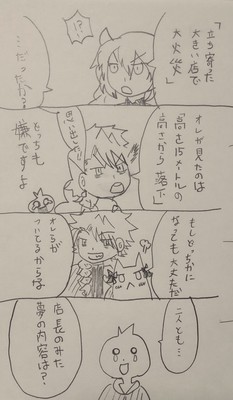 「立ち寄った
大きい店で
大火災」
!?
…だったかな?
オレが見たのは
「高さ15メートルの
高さから落下」
思い出した!
どっちも
嫌ですよ
もしどっちかに
なっても大丈夫だ
オレらが
ついてるからな
二人とも…
店長のみた
夢の内容は?